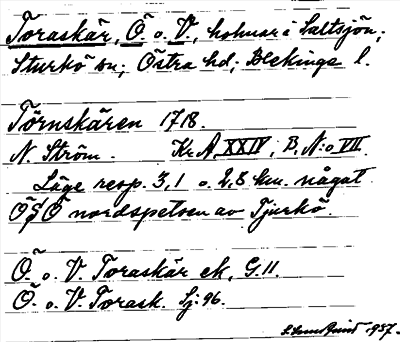 Toraskär, Ö. o. V., holmar i Saltsjön;
Sturkö sn; Östra hd; Blekinge l.
Törnskären 1718.
N. Ström. Kr. A. XXIV; B. N:o VII.
Läge resp. 3,1 o. 2,8 km. något
ÖSÖ nordspetsen av Tjurkö.
Ö. o. V. Toraskär ek. G. 11.
Ö. o. V. Torask. Sj: 96.
1937.